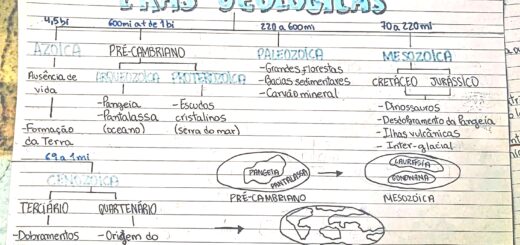 ERAS GEOLÓGICAS
4,5bi 600mi até de 1bi 220 a 600mi 70 a 220mi
AZOÍCA PRÉ-CAMBRIANO PALEOZOÍCA MESOZOÍCA
Ausência de vida
-Formação da Terra
ARQUEOZOÍCA PROTEROZOÍCA
-Pangeia
-Pantalassa (oceano)
-Escudos cristalinos (serra do mar)
-Grandes florestas
-Bacias sedimentares
-Carvão mineral
CRETÁCEO JURÁSSICO
-Dinossauros
-Desdobramento da Pangeia
-Ilhas vulcânicas
-Inter-glacial
69 a 1mi
CENOZOÍCA
TERCIÁRIO QUARTENÁRIO
-Dobramentos -Origem do
PANGEIA
PANTALASSA
PRÉ-CAMBRIANO
LAURASIA
GONDWANA
MESOZOÍCA